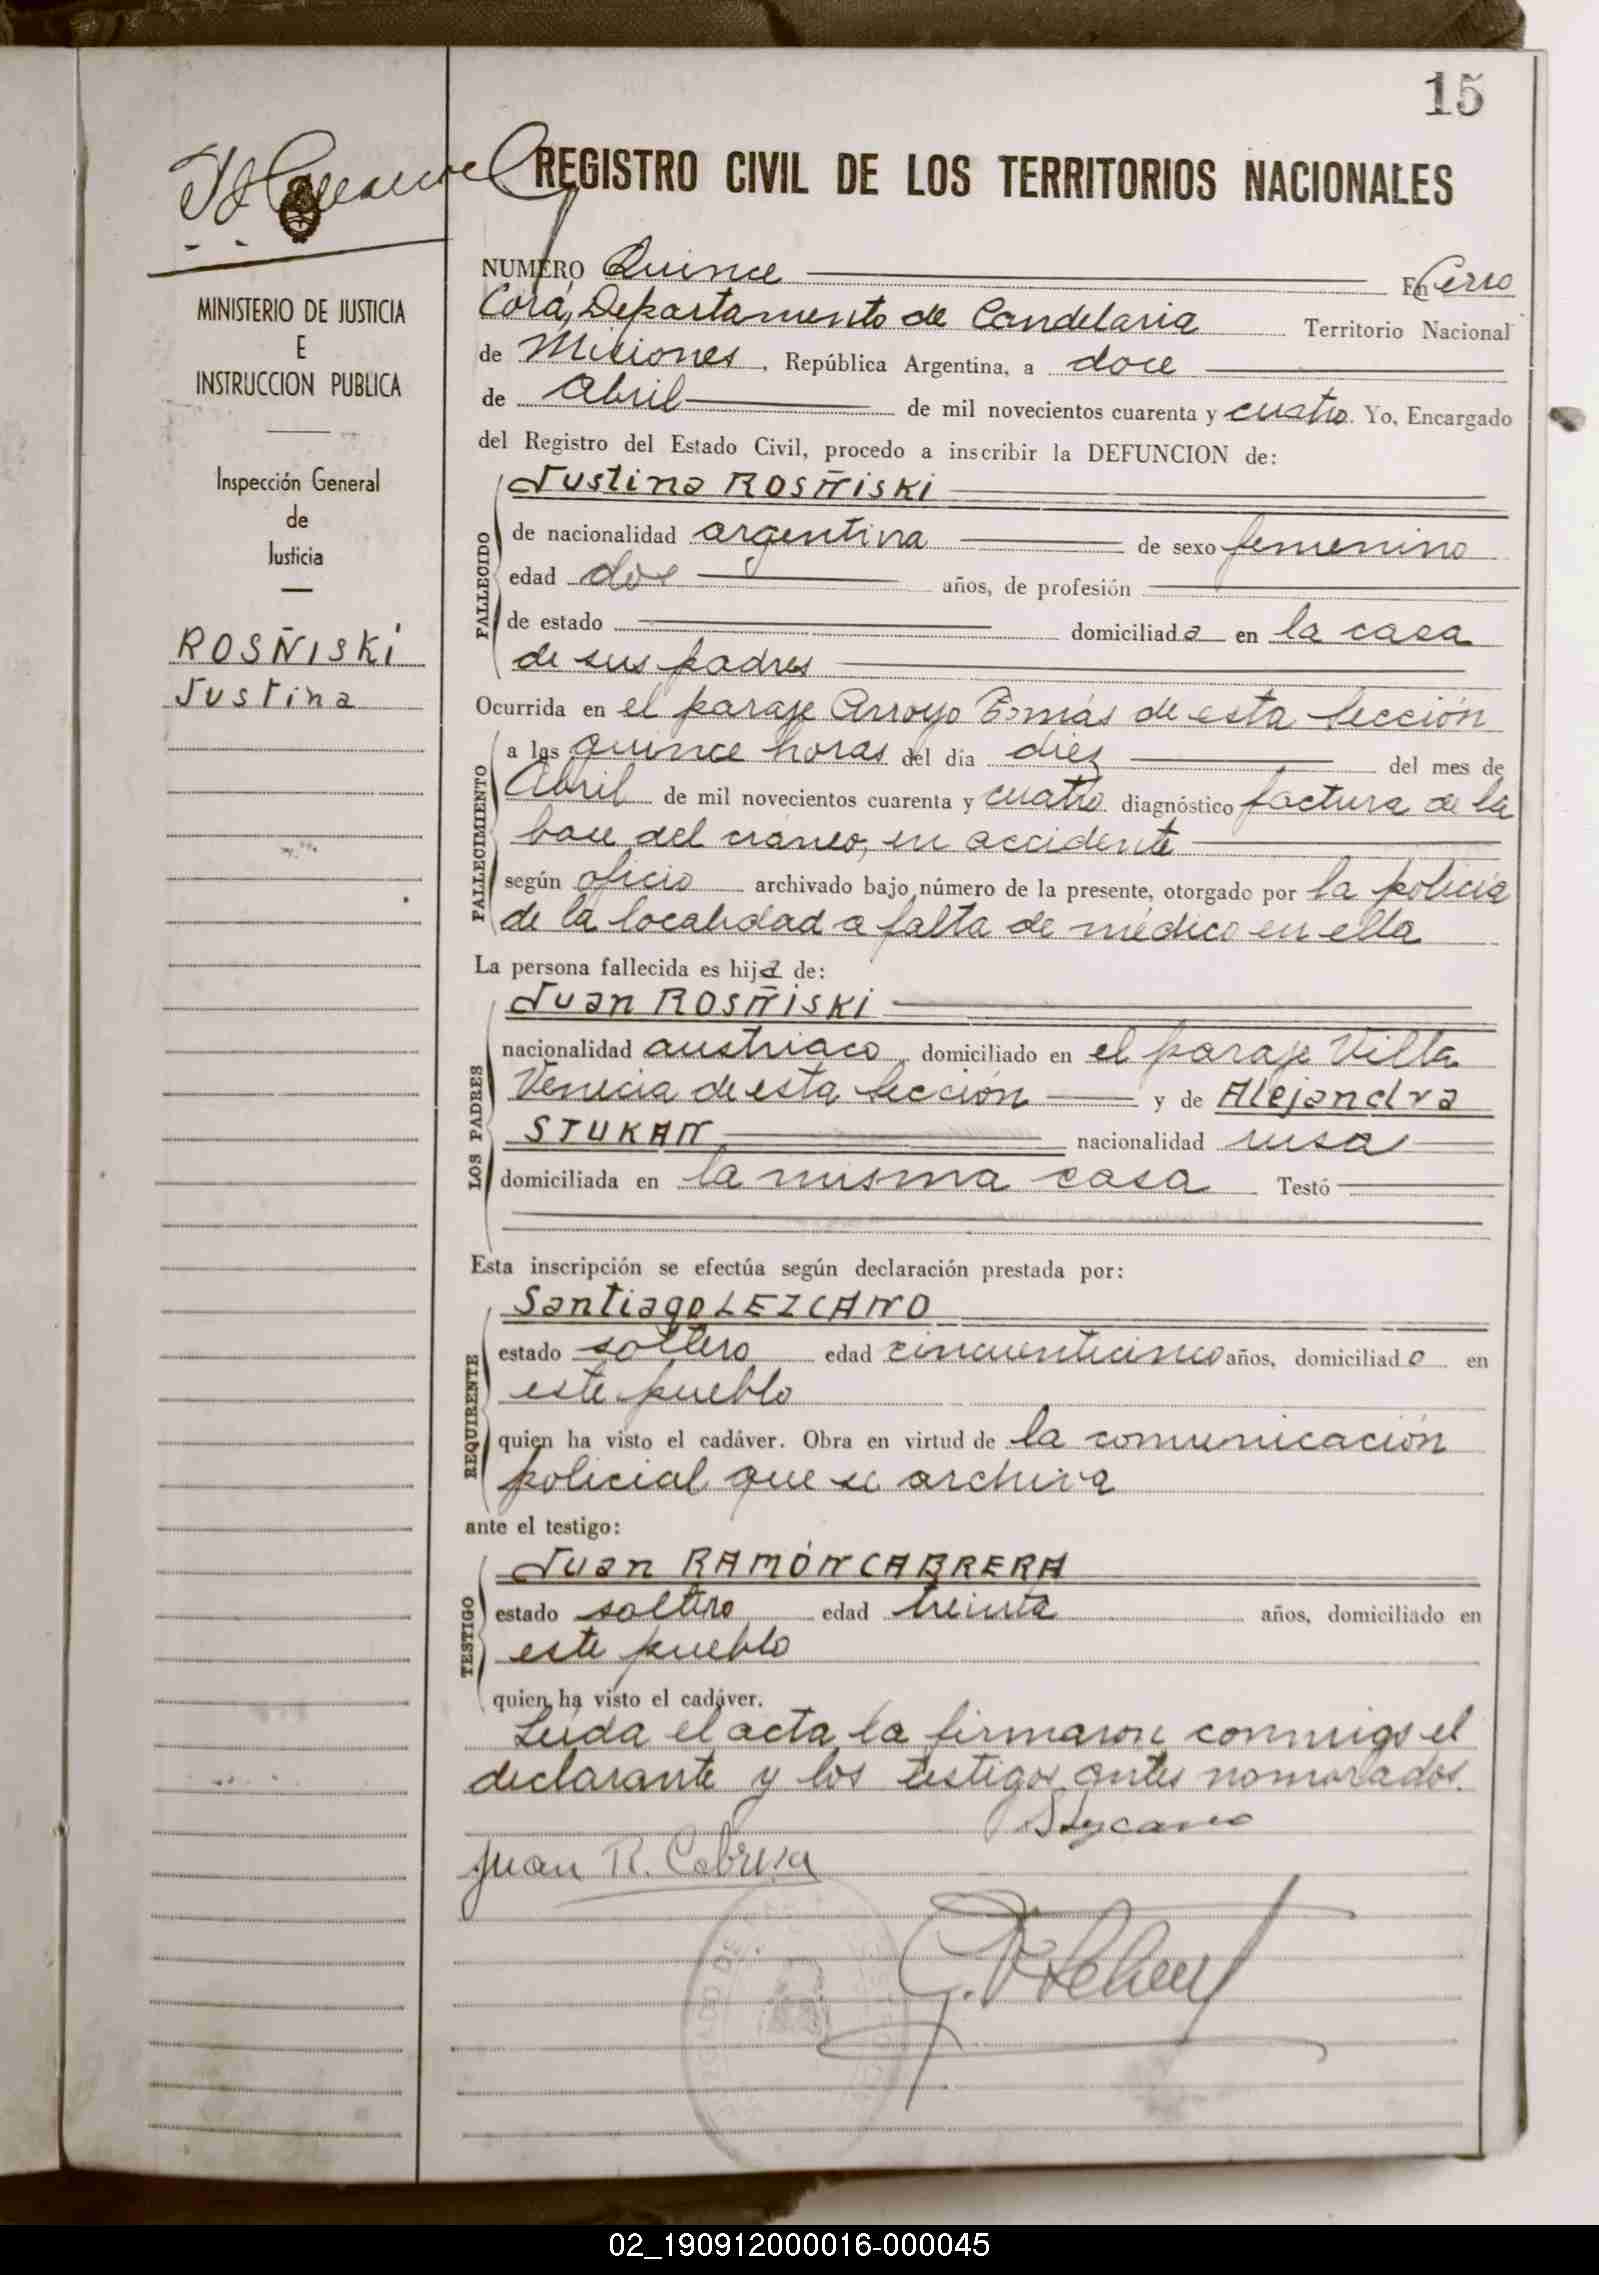 15
REGISTRO CIVIL DE LOS TERRITORIOS NACIONALES
MINISTERIO DE JUSTICIA
E
INSTRUCCION PUBLICA
Inspección General
de
Justicia
ROSÑISKI
Justina
NUMERO Quince En Cerro
Corá, Departamento de Candelaria Territorio Nacional
de Misiones, República Argentina, a doce
de Abril de mil novecientos cuarenta y cuatro. Yo, Encargado
del Registro del Estado Civil, procedo a inscribir la DEFUNCION de:
Justina ROSÑISKI
FALLECIDO
de nacionalidad argentina de sexo femenino
edad dos años, de profesión
de estado domiciliada en la casa
de sus padres
Ocurrida en el paraje Arroyo Tomás de esta Sección
FALLECIMIENTO
a las quince horas del dia diez del mes de
Abril de mil novecientos cuarenta y cuatro diagnóstico factura de la
base del cráneo, en accidente
según oficio archivado bajo número de la presente, otorgado por la policía
de la localidad a falta de médico en ella
La persona fallecida es hija de:
LOS PADRES
Juan ROSÑISKI
nacionalidad austriaco, domiciliado en el paraje Villa
Venecia de esta Sección y de Alejandra
STUKAN nacionalidad rusa
domiciliada en la misma casa Testó
Esta inscripción se efectúa según declaración prestada por:
REQUIRENTE
Santiago LEZCANO
estado soltero edad cincuenticinco años, domiciliado en
este pueblo
quien ha visto el cadáver. Obra en virtud de la comunicación
policial que se archiva
ante el testigo:
TESTIGO
Juan RAMÓN CABRERA
estado soltero edad treinta años, domiciliado en
este pueblo
quien ha visto el cadáver.
Leida el acta la firmaron conmigo el
declarante y los testigos antes nomorados.
Juan R. Cabrera
02_190912000016-000045